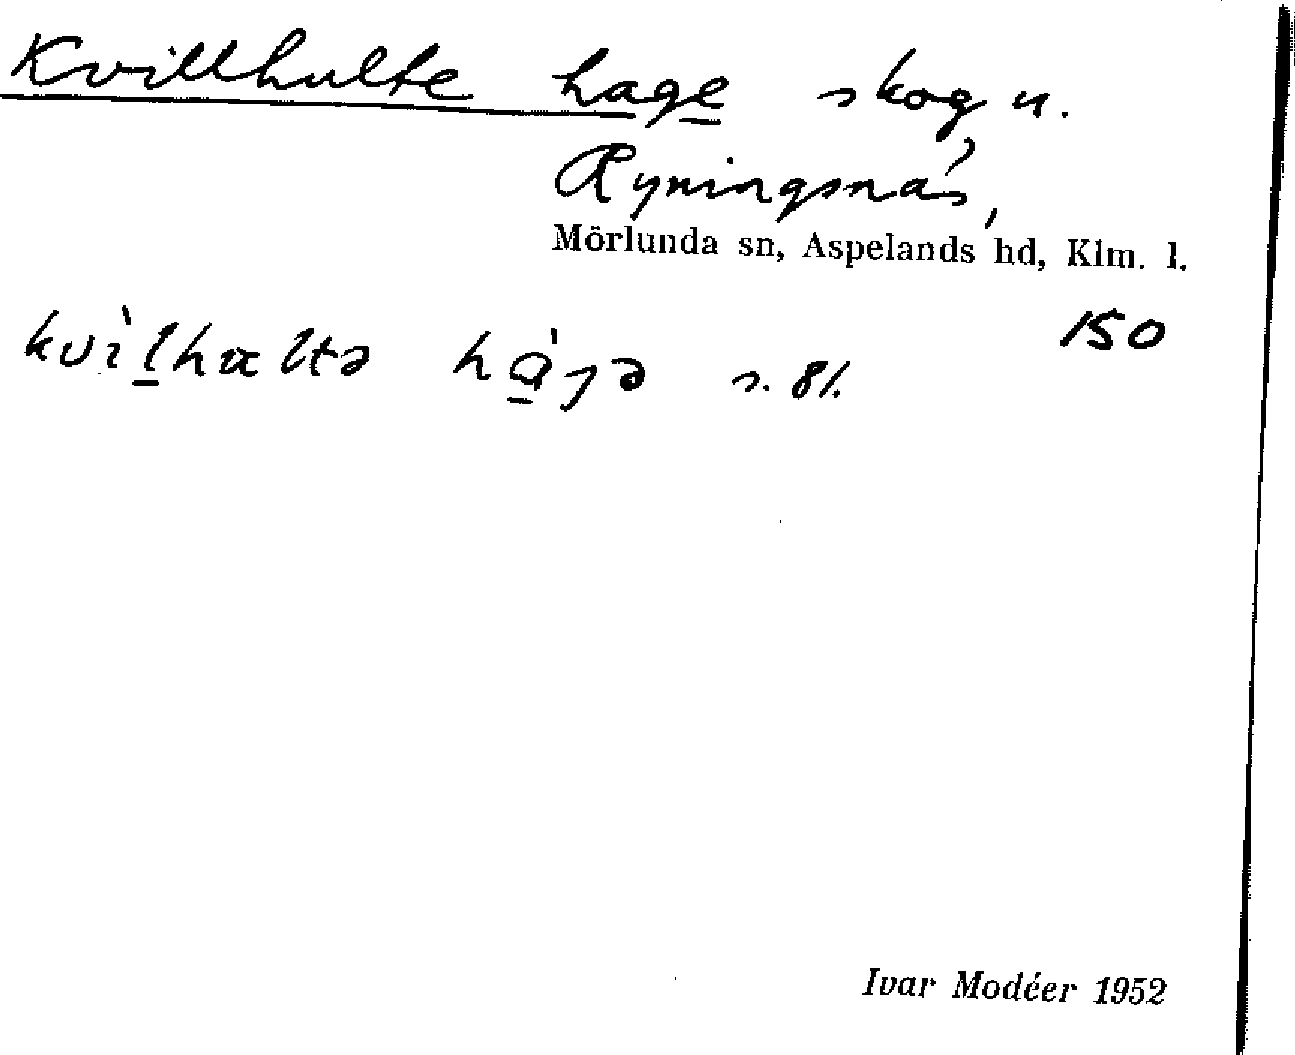 Kvillhulte hage skog n.
Ryningsnäs,
Mörlunda sn, Aspelands hd, Klm. l.
150
kvìlhæltə hàgə s. 81.
Ivar Modéer 1952